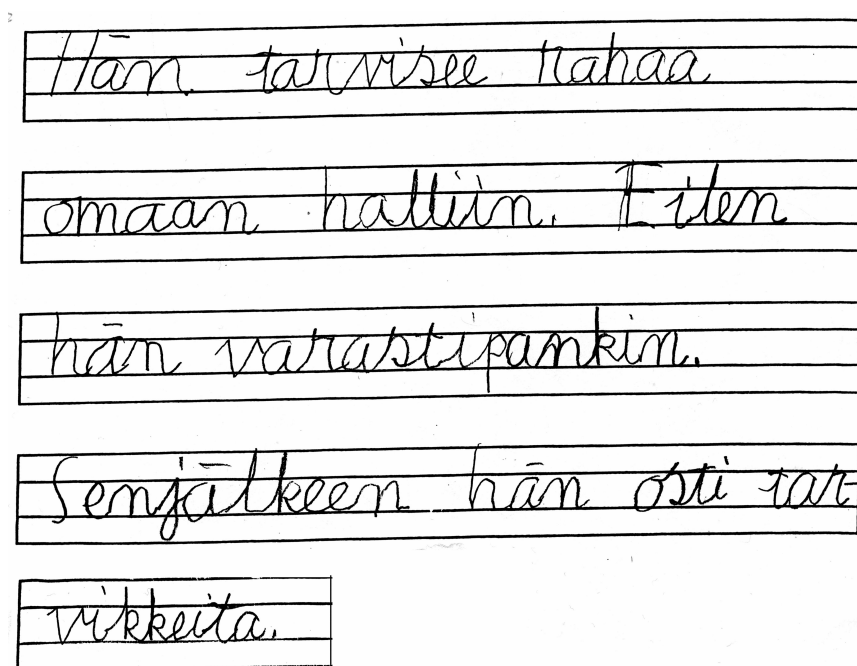 Hän tarvisee rahaa
omaan halliin. Eilen
hän varastipankin.
Senjälkeen hän osti tar-
vikkeita.